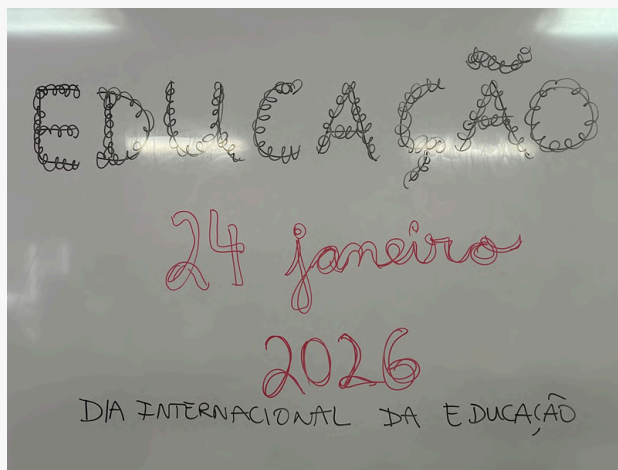 EDUCAÇÃO
24 janeiro
2026
DIA INTERNACIONAL DA EDUCAÇÃO